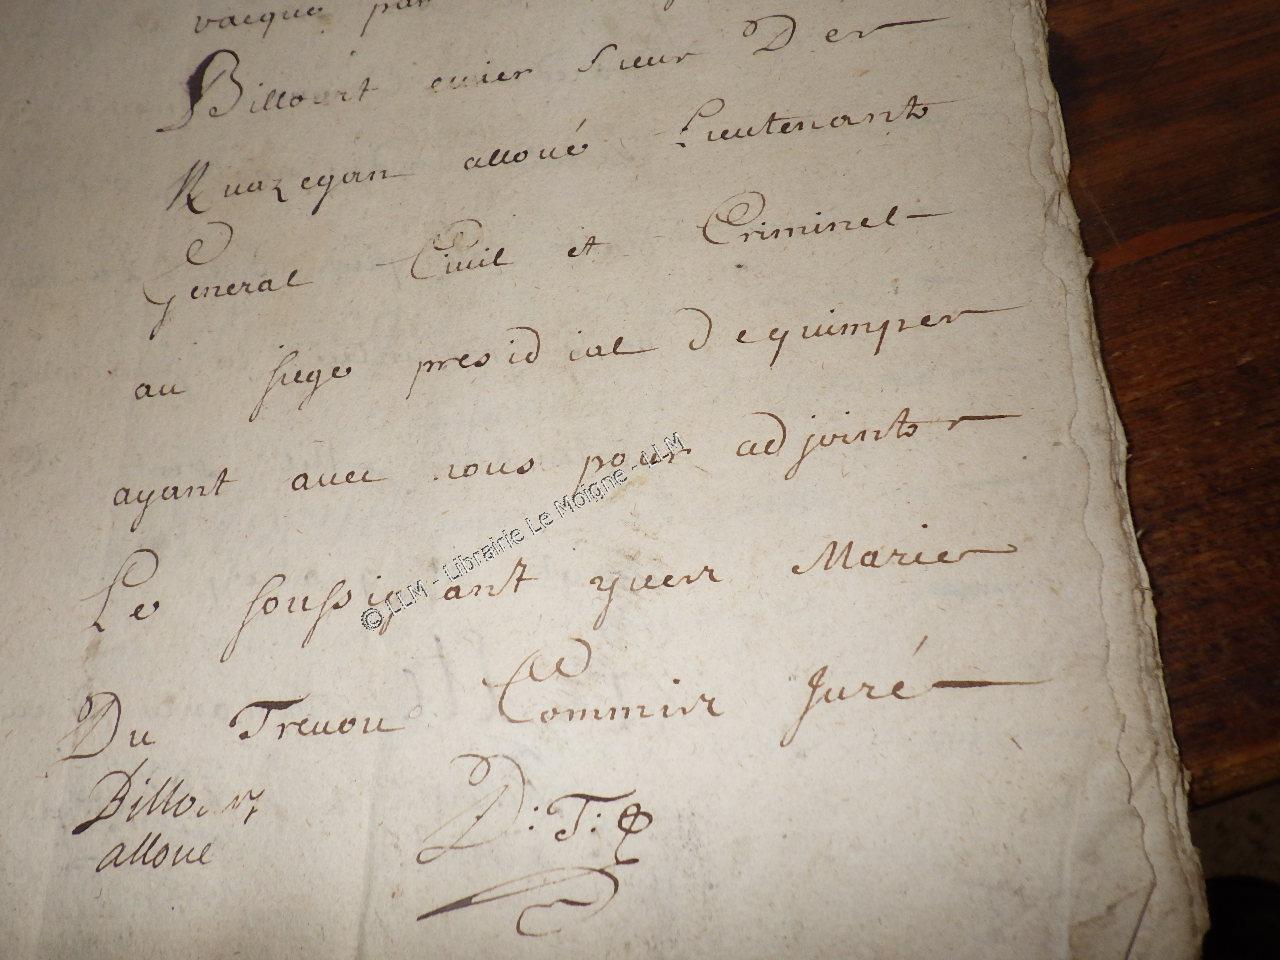 vacque par
Billoart ecuier sieur De
Kuazegan alloué Lieutenant
General Civil et Criminel
au siege presidial dequimper
ayant avec nous pour adjoint
Le soussignant yves Marie
Du Trevou Commis Juré
Billoart D: T:
alloué
© LLM - Librairie Le Moigne - LLM